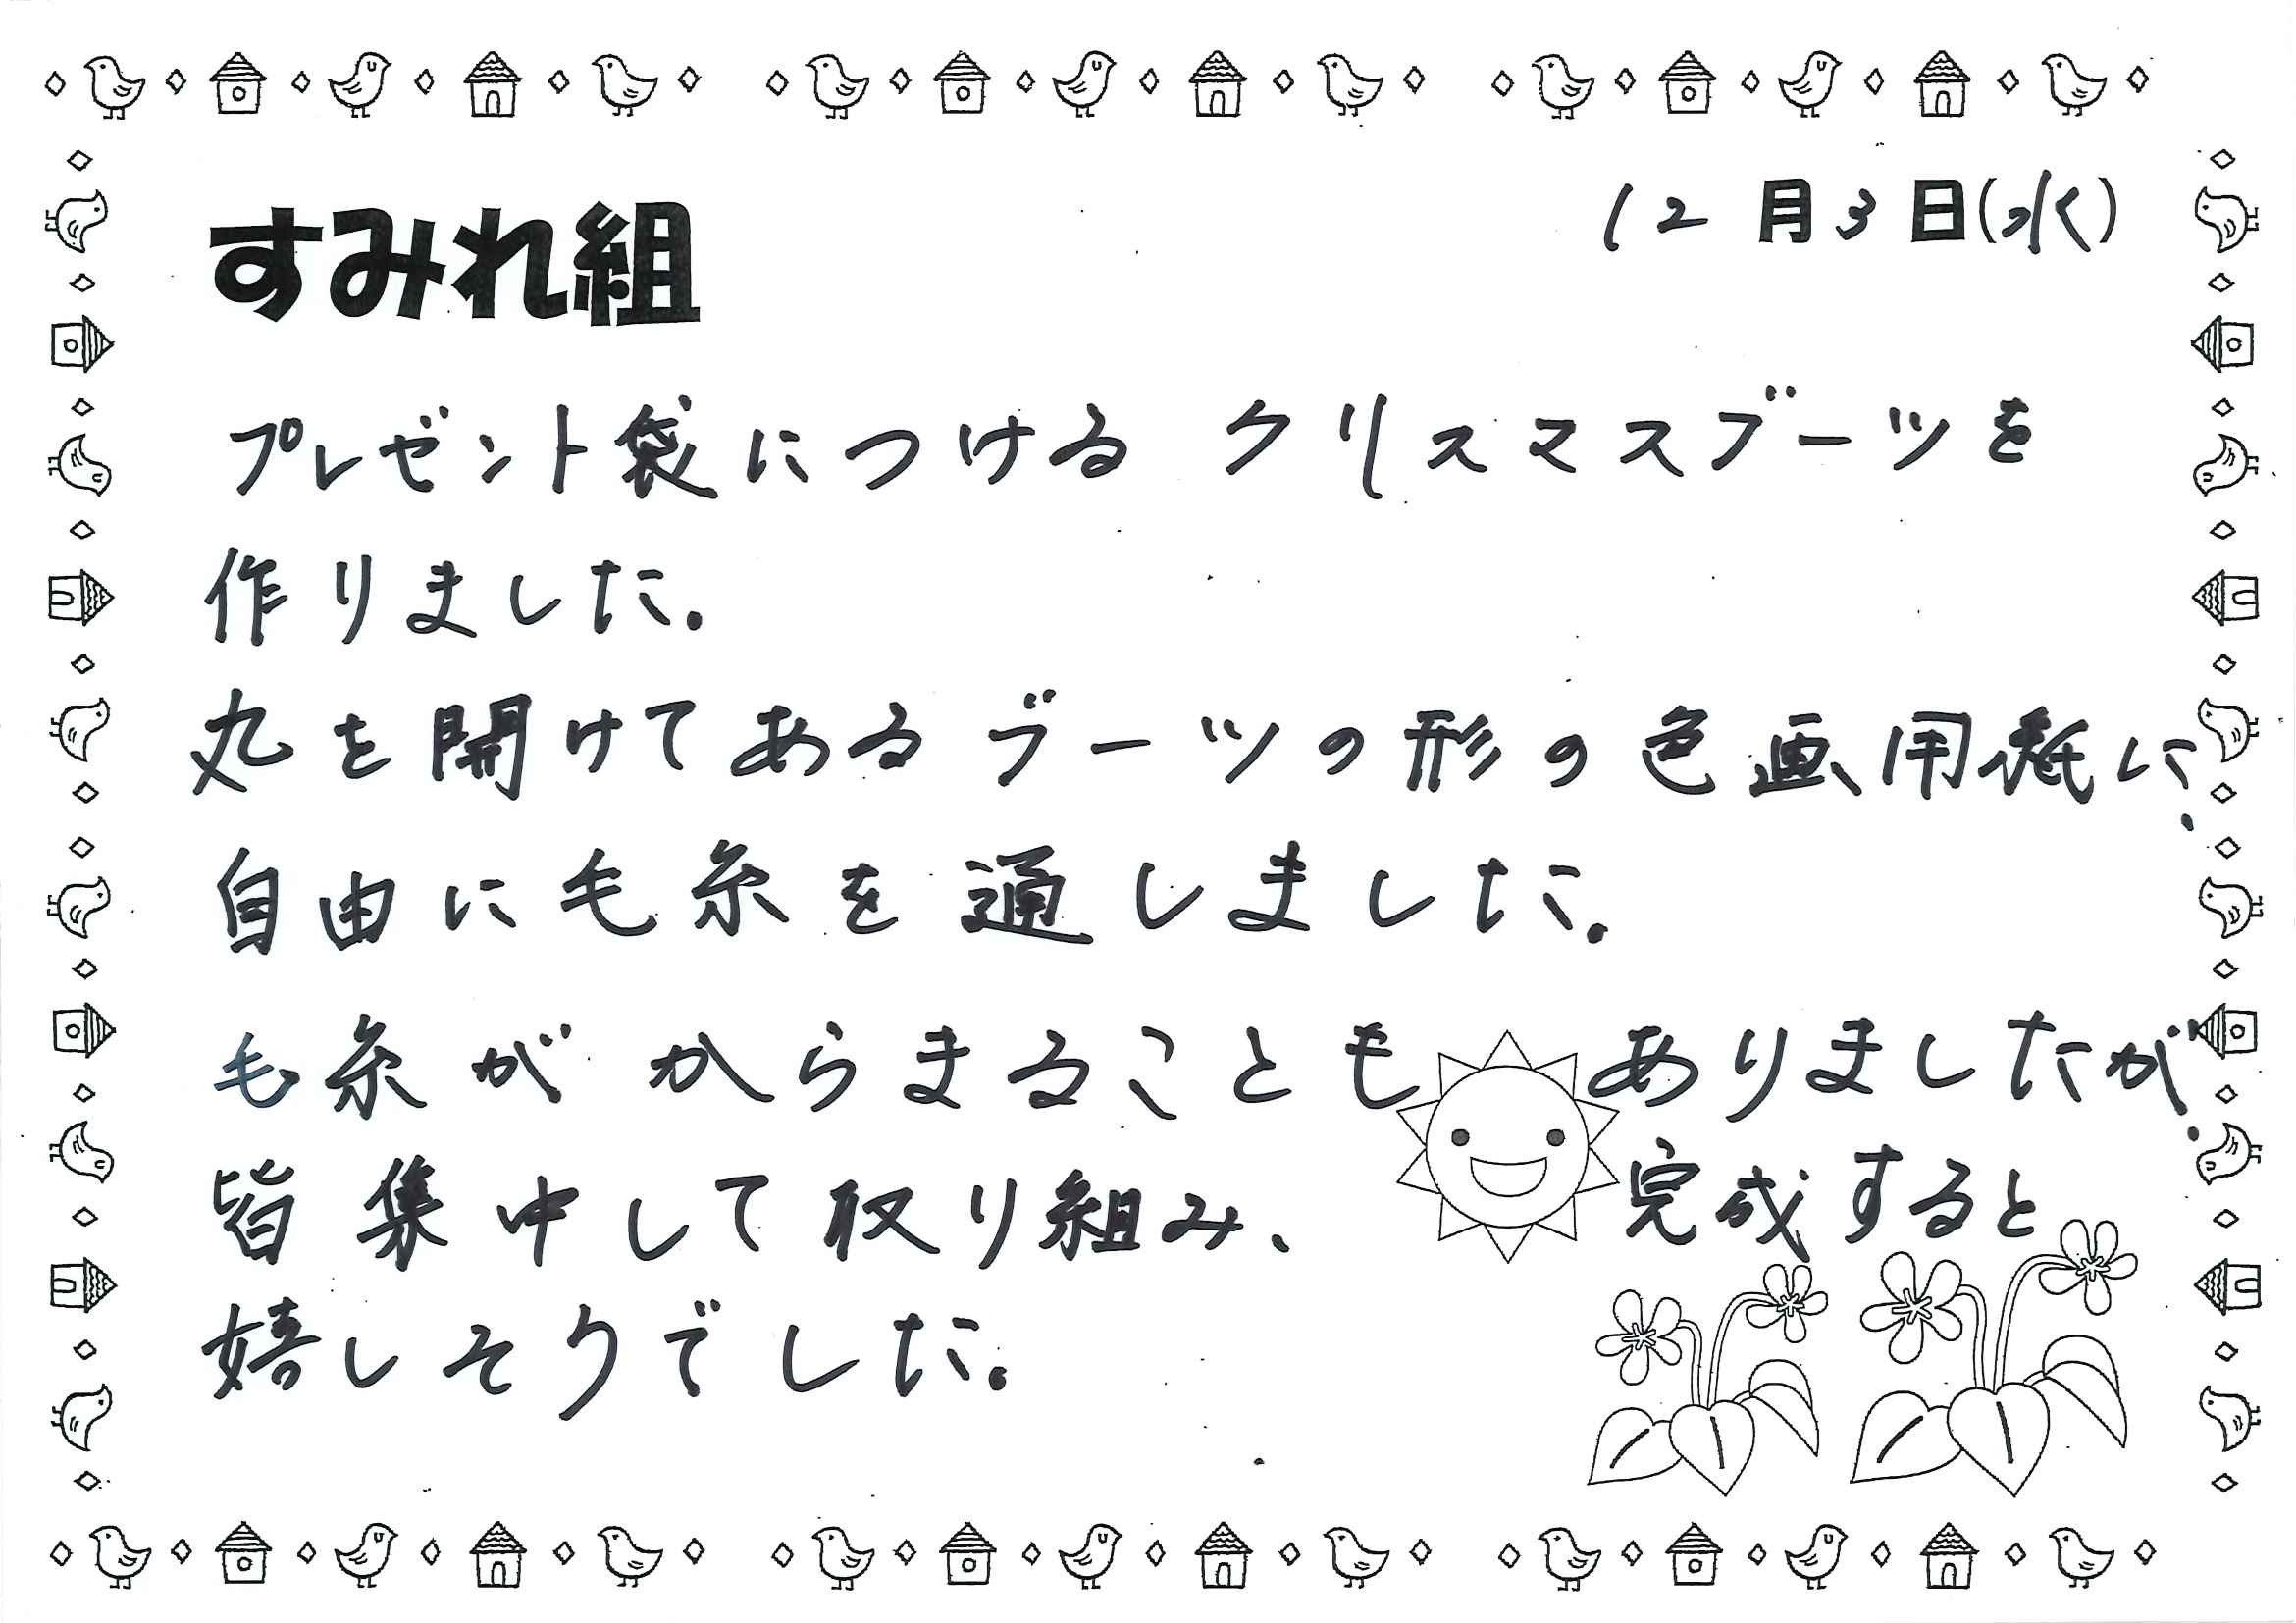 すみれ組
12月3日(水)
プレゼント袋につける クリスマスブーツを
作りました。
丸を開けてあるブーツの形の色画用紙に、
自由に毛糸を通しました。
毛糸が からまることも ありましたが、
皆集中して取り組み、 完成すると
嬉しそうでした。